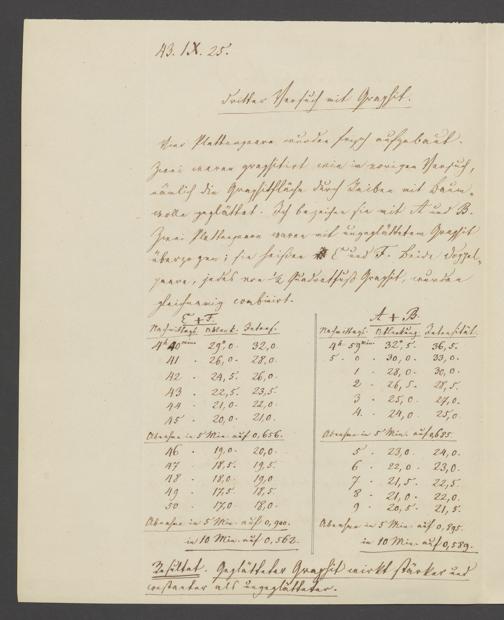 43. IX. 25.
Dritter Versuch mit Graphit.
Vier Plattenpaare wurden frisch aufgebaut.
Zwei waren graphitirt wie im vorigen Versuch,
nämlich die Graphitfläche durch Reiben mit Baum-
wolle geglättet. Ich bezeichne sie mit A und B.
Zwei Plattenpaare waren mit ungeglättetem Graphit
überzogen; sie heißen E und F. Beide Doppel-
paare, jedes von ½ Quadratfuß Graphit, wurden
gleichnamig combinirt.
E + F.
Nachmittags. Ablenk. Intens.
4h 40min 29°,0. 32,0.
41 . 26,0. 28,0.
42 . 24,5. 26,0.
43 . 22,5. 23,5.
44 . 21,0. 22,0.
45 . 20,0. 21,0.
Abnahme in 5 Min. auf 0,656.
46 . 19,0. 20,0.
47 . 18,5. 19,5.
48 . 18,0. 19,0
49 . 17,5. 18,5.
50 . 17,0. 18,0.
Abnahme in 5 Min. auf 0,900.
in 10 Min. auf 0,562.
A + B.
Nachmittags. Ablenkung. Intensität.
4h 59min 32°,5. 36,5.
5 . 0 . 30,0. 33,0.
1 . 28,0. 30,0.
2 . 26,5. 28,5.
3 . 25,0. 27,0.
4 . 24,0. 25,0.
Abnahme in 5 Min. auf 0,685.
5 . 23,0. 24,0.
6 . 22,0. 23,0.
7 . 21,5. 22,5.
8 . 21,0. 22,0.
9 . 20,5. 21,5.
Abnahme in 5 Min. auf 0,895.
in 10 Min. auf 0,589.
Resultat. Geglätteter Graphit wirkt stärker und
constanter als ungeglätteter.